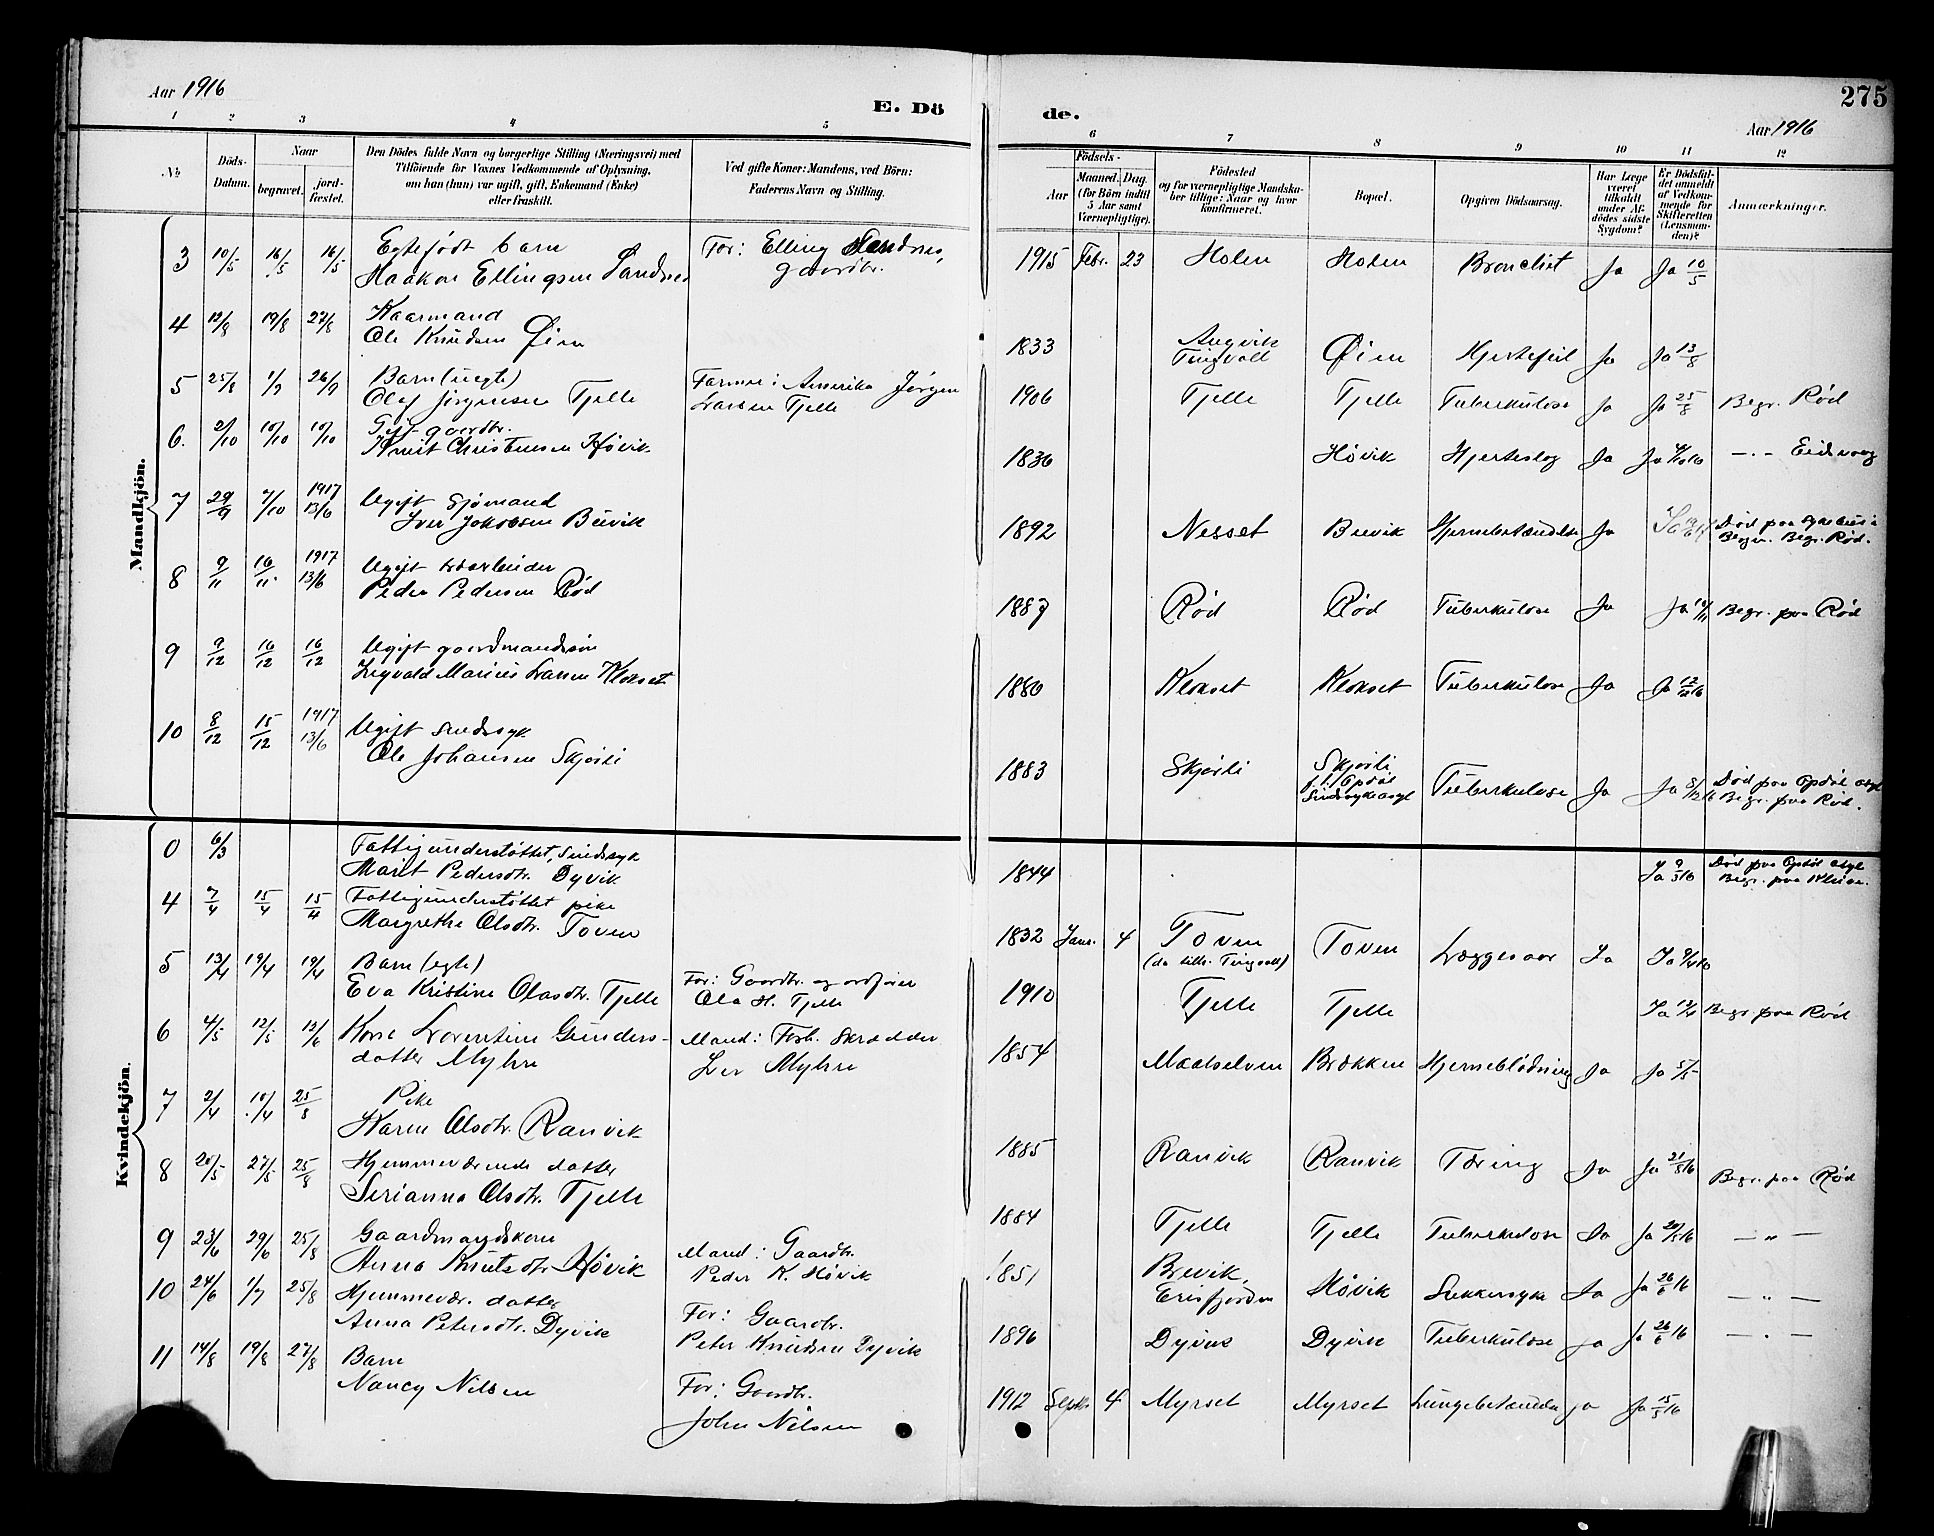 Aar 1916
E. Dö
de.
275
Aar 1916
1 2 3 4 5
6 7 8 9 10 11 12
No
Döds-
Datum.
Naar
begravet.
jord-
fæstet.
Den Dödes fulde Navn og borgerlige Stilling (Næringsvei) med
Tilföiende for Voxnes Vedkommende af Oplysning,
om han (hun) var ugift, gift, Enkemand (Enke)
eller fraskilt.
Ved gifte Koner: Mandens, ved Börn:
Faderens Navn og Stilling.
Födsels-
Aar
Maaned. Dag.
(for Börn indtil
5 Aar samt
Værnepligtige).
Födested
og for værnepligtige Mandska-
ber tillige: Naar og hvor
konfirmeret.
Bopæl.
Opgiven Dödsaarsag.
Har Læge
været
tilkaldt
under Af-
dödes sidste
Sygdom?
Er Dödsfal-
det anmeldt
af Vedkom-
mende for
Skifteretten
(Lensman-
den)?
Anmærkninger.
Mandkjön.
3 10/5 16/5 16/5 Egtefødt barn
Haakon Ellingsen Sandnes
Far: Elling Sandnes,
gaardbr.
1915 Febr. 23 Holen Holen Bronchit Ja Ja 10/5
4 12/8 19/8 27/8 Kaarmand
Ole Knudsen Øien
1833 Angvik
Tingvoll
Øien Hjertefeil Ja Ja 13/8
5 25/8 1/9 26/9 Barn (uegte)
Olaf Jørgensen Tjelle
Farmer i Amerika Jørgen
Larsen Tjelle
1906 Tjelle Tjelle Tuberkulose Ja Ja 25/8 Begr. Rød
6. 2/10 10/10 10/10 Gift gaardbr.
Knut Christensen Høvik
1836 Høvik Hjerteslag Ja Ja -"- Eidsvaag
7 29/9 7/10 1917 13/6 Ugift sjømand
Iver Jakobsen Buvik
1892 Nesset Buvik Hjernebetændelse Ja Ja Død paa sykehus i
Bergen. Begr. Rød.
8 9/11 16/11 1917 13/6 Ugift
Peder Pedersen Rød
1887 Rød Rød Tuberkulose Ja Ja Begr. paa Rød
9 9/12 16/12 16/12 Ugift gaardmandssøn
Sigvald Marius Larsen Klokset
1880 Klokset Klokset Tuberkulose Ja Ja 12/12 16
10 8/12 15/12 1917 13/6 Ugift sindssyk
Ole Johansen Skjørli
1883 Skjørli Skjørli
f. t. Opdøl
Sindssykeasyl
Tuberkulose Ja Ja 8/12 16 Død paa Opdøl asyl
Begr. paa Rød.
Kvindekjön.
0 6/3 Fattigunderstøttet, Sindssyk
Marit Pedersdtr. Dyvik
1844 Ja 9/3 16 Død paa Opdøl asyl
Begr. paa Kleive.
4 7/4 15/4 15/4 Fattigunderstøttet pike
Margrethe Olsdtr. Toven
1832 Jan. 4 Toven
(da tilh. Tingvoll)
Toven Læggesaar Ja Ja
5 13/4 19/4 19/4 Barn (egte)
Eva Kristine Olasdtr. Tjelle
Far: Gaardbr. og ordfører
Ola H. Tjelle
1910 Tjelle Tjelle Ja Begr. paa Rød
6 4/5 12/5 13/6 Kone Lorentine Gunders-
datter Myhre
Mand: Forh. Skrædder
Iver Myhre
1854 Maalselven Brækken Hjerneblødning Ja Ja 5/5
7 2/4 10/4 25/8 Pike
Karen Olsdtr. Ranvik
1885 Ranvik Ranvik Tæring Ja Ja 21/8 16
8 20/5 27/5 25/8 Hjemmeværende datter
Serianna Olsdtr. Tjelle
1884 Tjelle Tjelle Tuberkulose Ja Ja 20/5 16 Begr. paa Rød
9 23/6 29/6 25/8 Gaardmandskone
Anna Knutsdtr. Høvik
Mand: Gaardbr.
Peder K. Høvik
1851 Brevik,
Erisfjorden
Høvik Sukkersyke Ja Ja 26/6 16 -"-
10 24/6 1/7 25/8 Hjemmevær. datter
Anna Petersdtr. Dyvik
Far: Gaardbr.
Peter Knudsen Dyvik
1896 Dyvik Dyvik Tuberkulose Ja Ja 26/6 16 -"-
11 14/8 19/8 27/8 Barn
Nancy Nilsen
Far: Gaardbr.
John Nilsen
1912 Septb. 4 Myrset Myrset Lungebetændelse Ja Ja 15/8 16 -"-